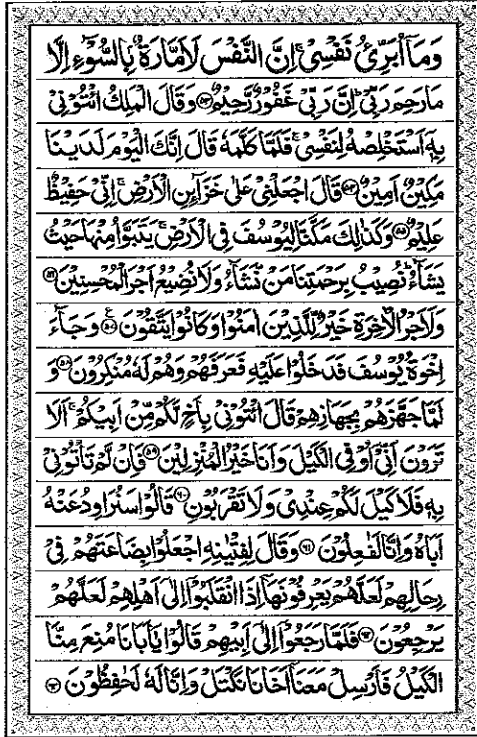 وَمَاۤ اُبَرِّئُ نَفْسِیْ ۚ اِنَّ النَّفْسَ لَاَمَّارَةٌۢ بِالسُّوْٓءِ اِلَّا
مَا رَحِمَ رَبِّیْ ؕ اِنَّ رَبِّیْ غَفُوْرٌ رَّحِیْمٌ ﴿۵۳﴾ وَقَالَ الْمَلِكُ ائْتُوْنِیْ
بِهٖۤ اَسْتَخْلِصْهُ لِنَفْسِیْ ۚ فَلَمَّا كَلَّمَهٗ قَالَ اِنَّكَ الْیَوْمَ لَدَیْنَا
مَكِیْنٌ اَمِیْنٌ ﴿۵۴﴾ قَالَ اجْعَلْنِیْ عَلٰی خَزَآئِنِ الْاَرْضِ ۚ اِنِّیْ حَفِیْظٌ
عَلِیْمٌ ﴿۵۵﴾ وَكَذٰلِكَ مَكَّنَّا لِیُوْسُفَ فِی الْاَرْضِ ۚ یَتَبَوَّاُ مِنْهَا حَیْثُ
یَشَآءُ ؕ نُصِیْبُ بِرَحْمَتِنَا مَنْ نَّشَآءُ وَلَا نُضِیْعُ اَجْرَ الْمُحْسِنِیْنَ ﴿۵۶﴾
وَلَاَجْرُ الْاٰخِرَةِ خَیْرٌ لِّلَّذِیْنَ اٰمَنُوْا وَكَانُوْا یَتَّقُوْنَ ﴿۵۷﴾ ع وَجَآءَ
اِخْوَةُ یُوْسُفَ فَدَخَلُوْا عَلَیْهِ فَعَرَفَهُمْ وَهُمْ لَهٗ مُنْكِرُوْنَ ﴿۵۸﴾ وَ
لَمَّا جَهَّزَهُمْ بِجَهَازِهِمْ قَالَ ائْتُوْنِیْ بِاَخٍ لَّكُمْ مِّنْ اَبِیْكُمْ ۚ اَلَا
تَرَوْنَ اَنِّیْۤ اُوْفِی الْكَیْلَ وَاَنَا خَیْرُ الْمُنْزِلِیْنَ ﴿۵۹﴾ فَاِنْ لَّمْ تَاْتُوْنِیْ
بِهٖ فَلَا كَیْلَ لَكُمْ عِنْدِیْ وَلَا تَقْرَبُوْنِ ﴿۶۰﴾ قَالُوْا سَنُرَاوِدُ عَنْهُ
اَبَاهُ وَاِنَّا لَفٰعِلُوْنَ ﴿۶۱﴾ وَقَالَ لِفِتْیٰنِهِ اجْعَلُوْا بِضَاعَتَهُمْ فِیْ
رِحَالِهِمْ لَعَلَّهُمْ یَعْرِفُوْنَهَاۤ اِذَا انْقَلَبُوْۤا اِلٰۤی اَهْلِهِمْ لَعَلَّهُمْ
یَرْجِعُوْنَ ﴿۶۲﴾ فَلَمَّا رَجَعُوْۤا اِلٰۤی اَبِیْهِمْ قَالُوْا یٰۤاَبَانَا مُنِعَ مِنَّا
الْكَیْلُ فَاَرْسِلْ مَعَنَاۤ اَخَانَا نَكْتَلْ وَاِنَّا لَهٗ لَحٰفِظُوْنَ ﴿۶۳﴾